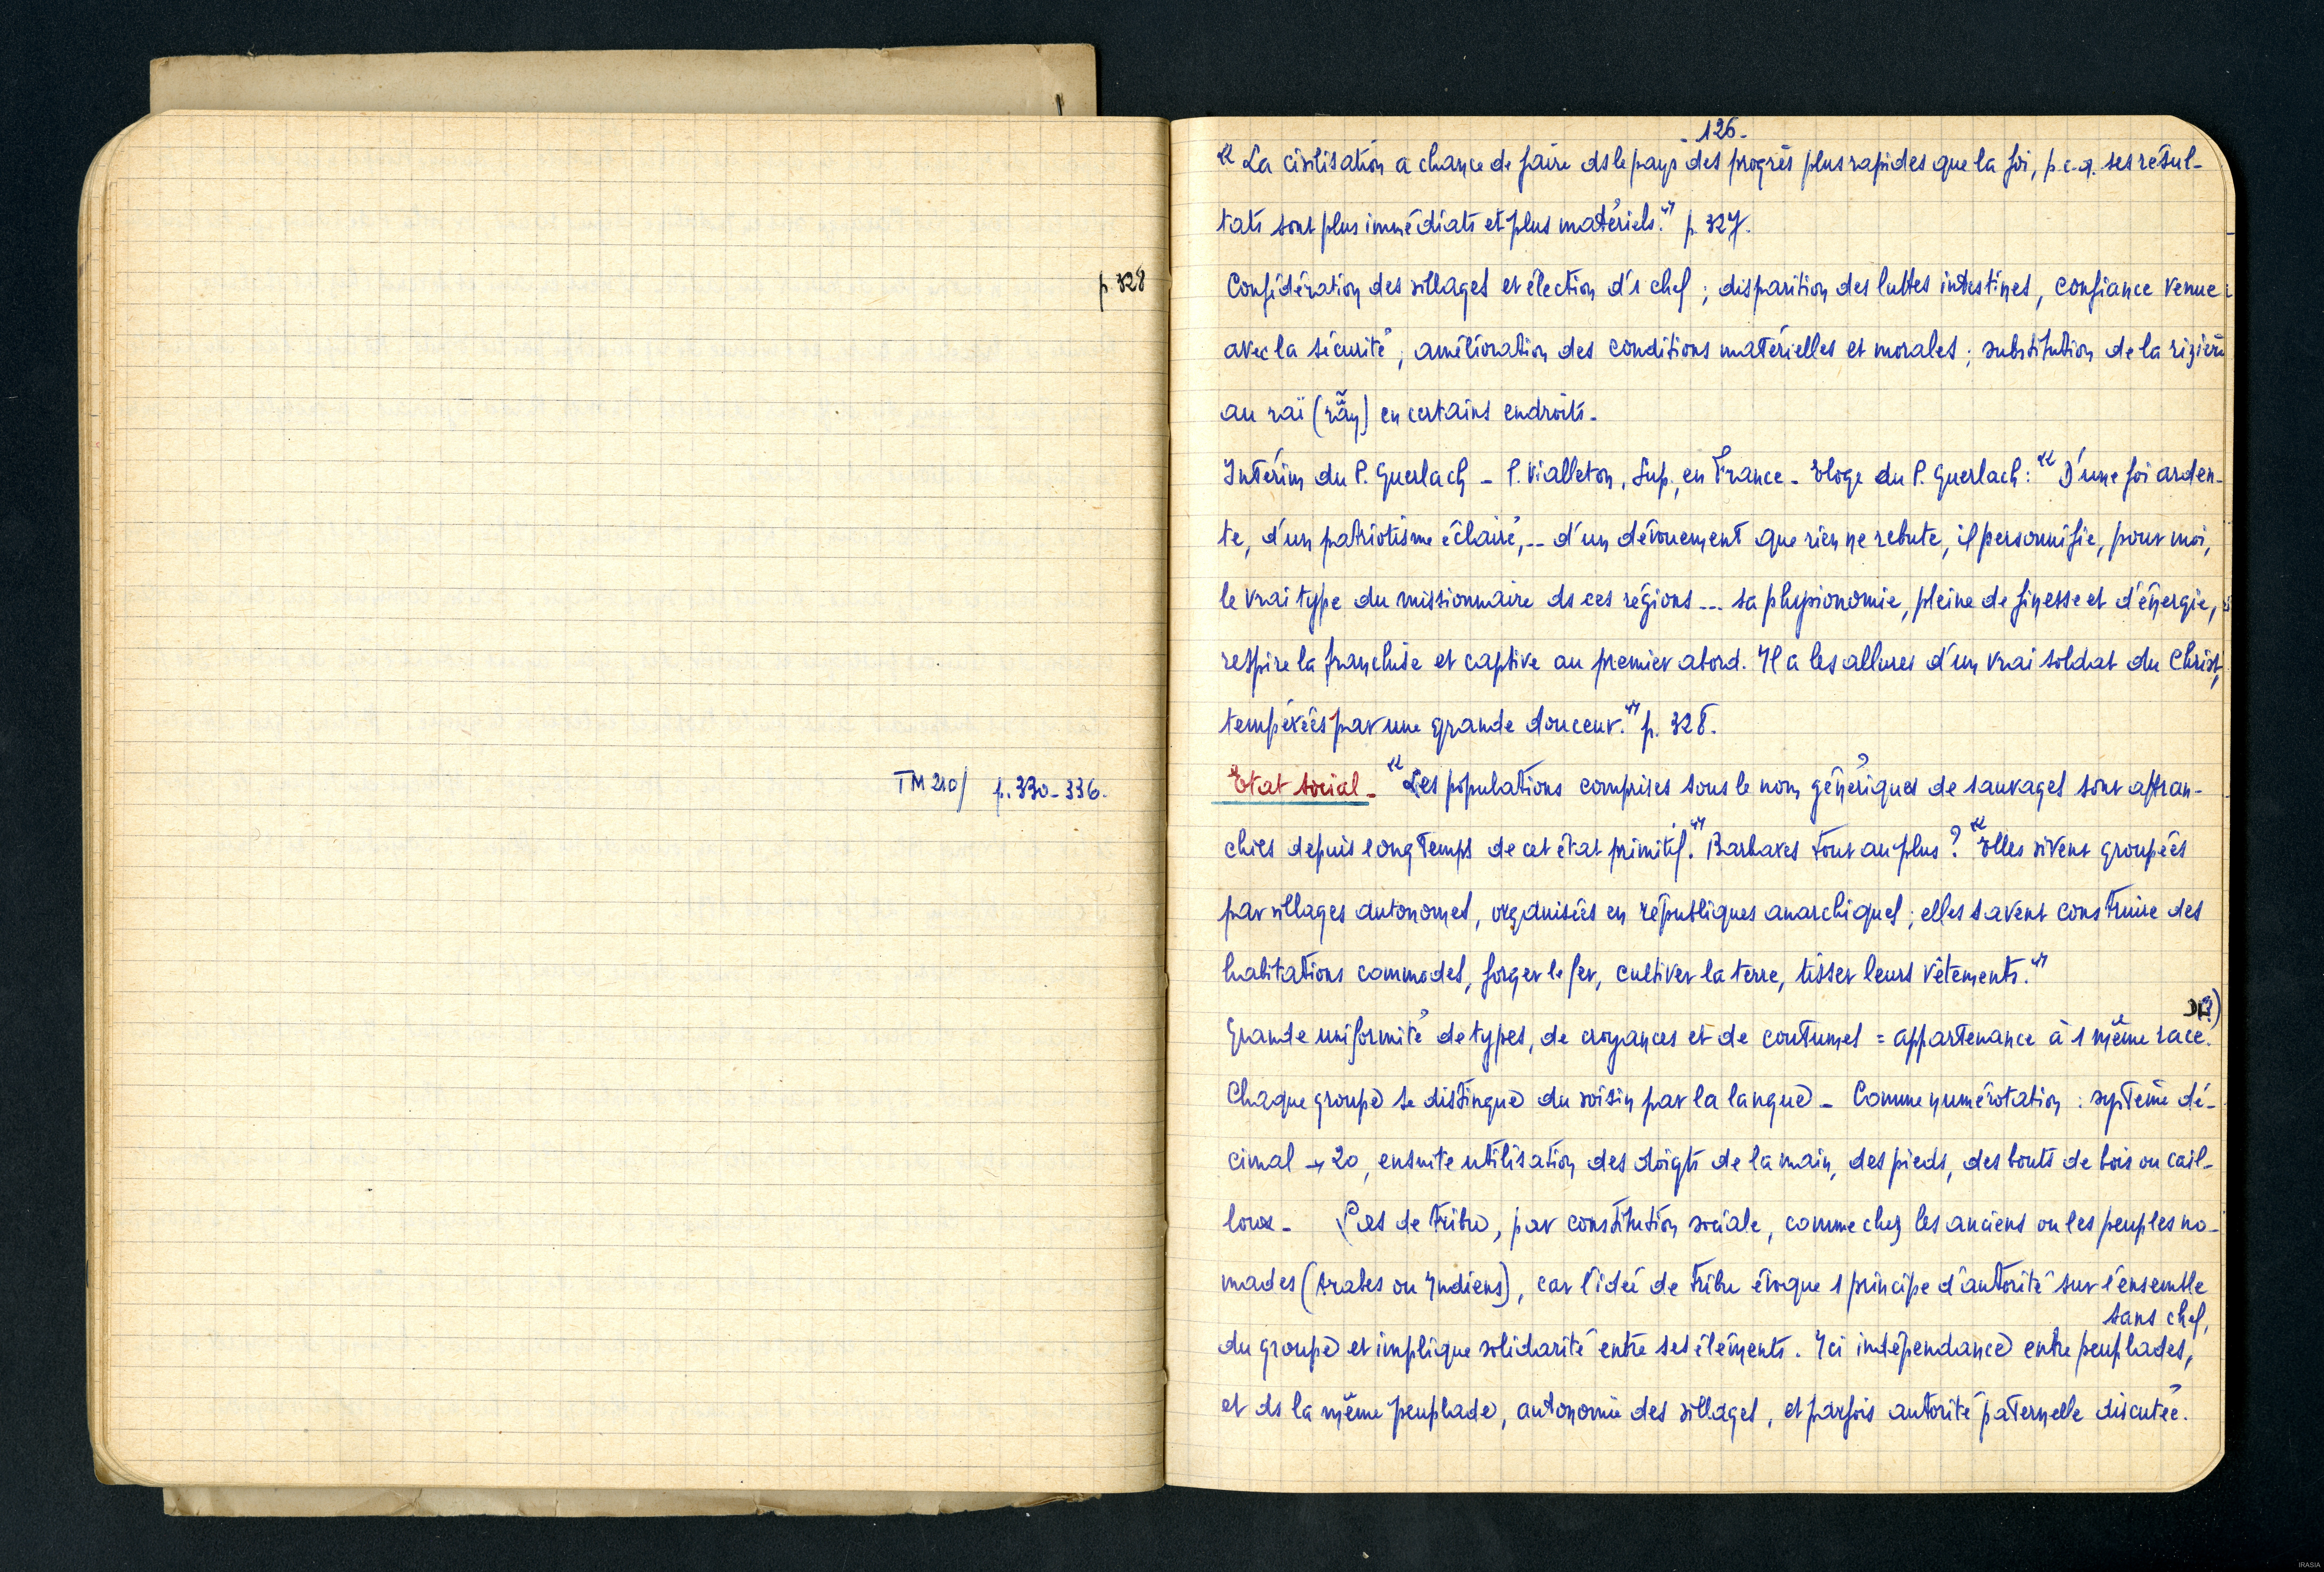 p. 328
TM 210/ p. 330-336.
- 126 -
« La civilisation a chance de faire ds le pays des progrès plus rapides que la foi, p.c.q. ses résul-
tats sont plus immédiats et plus matériels." p. 327.
Confédération des villages et élection d'1 chef ; disparition des luttes intestines, confiance venue
avec la sécurité ; amélioration des conditions matérielles et morales ; substitution de la rizière
au raï (rẫy) en certains endroits -
Intérim du P. Guerlach - P. Vialleton, Sup., en France - Eloge du P. Guerlach : « D'une foi arden-
te, d'un patriotisme éclairé, .. d'un dévouement que rien ne rebute, il personnifie, pour moi,
le vrai type du missionnaire ds ces régions ... sa physionomie, pleine de finesse et d'énergie,
respire la franchise et captive au premier abord. Il a les allures d'un vrai soldat du Christ,
tempérées par une grande douceur." p. 328.
Etat social - « Les populations comprises sous le nom génériques de sauvages sont affran-
chies depuis longtemps de cet état primitif." Barbares tout au plus ? « Elles vivent groupées
par villages autonomes, organisées en républiques anarchiques ; elles savent construire des
habitations commodes, forger le fer, cultiver la terre, tisser leurs vêtements."
Grande uniformité de types, de croyances et de coutumes = appartenance à 1 même race. (?)
Chaque groupe se distingue du voisin par la langue - Comme numérotation : système dé-
cimal → 20, ensuite utilisation des doigts de la main, des pieds, des bouts de bois ou cail-
loux - Pas de tribu, par constitution sociale, comme chez les anciens ou les peuples no-
mades (Arabes ou Indiens), car l'idée de tribu évoque 1 principe d'autorité sur l'ensemble
du groupe et implique solidarité entre ses éléments. Ici indépendance entre peuplades, sans chef,
et ds la même peuplade, autonomie des villages, et parfois autorité paternelle discutée.
IRASIA